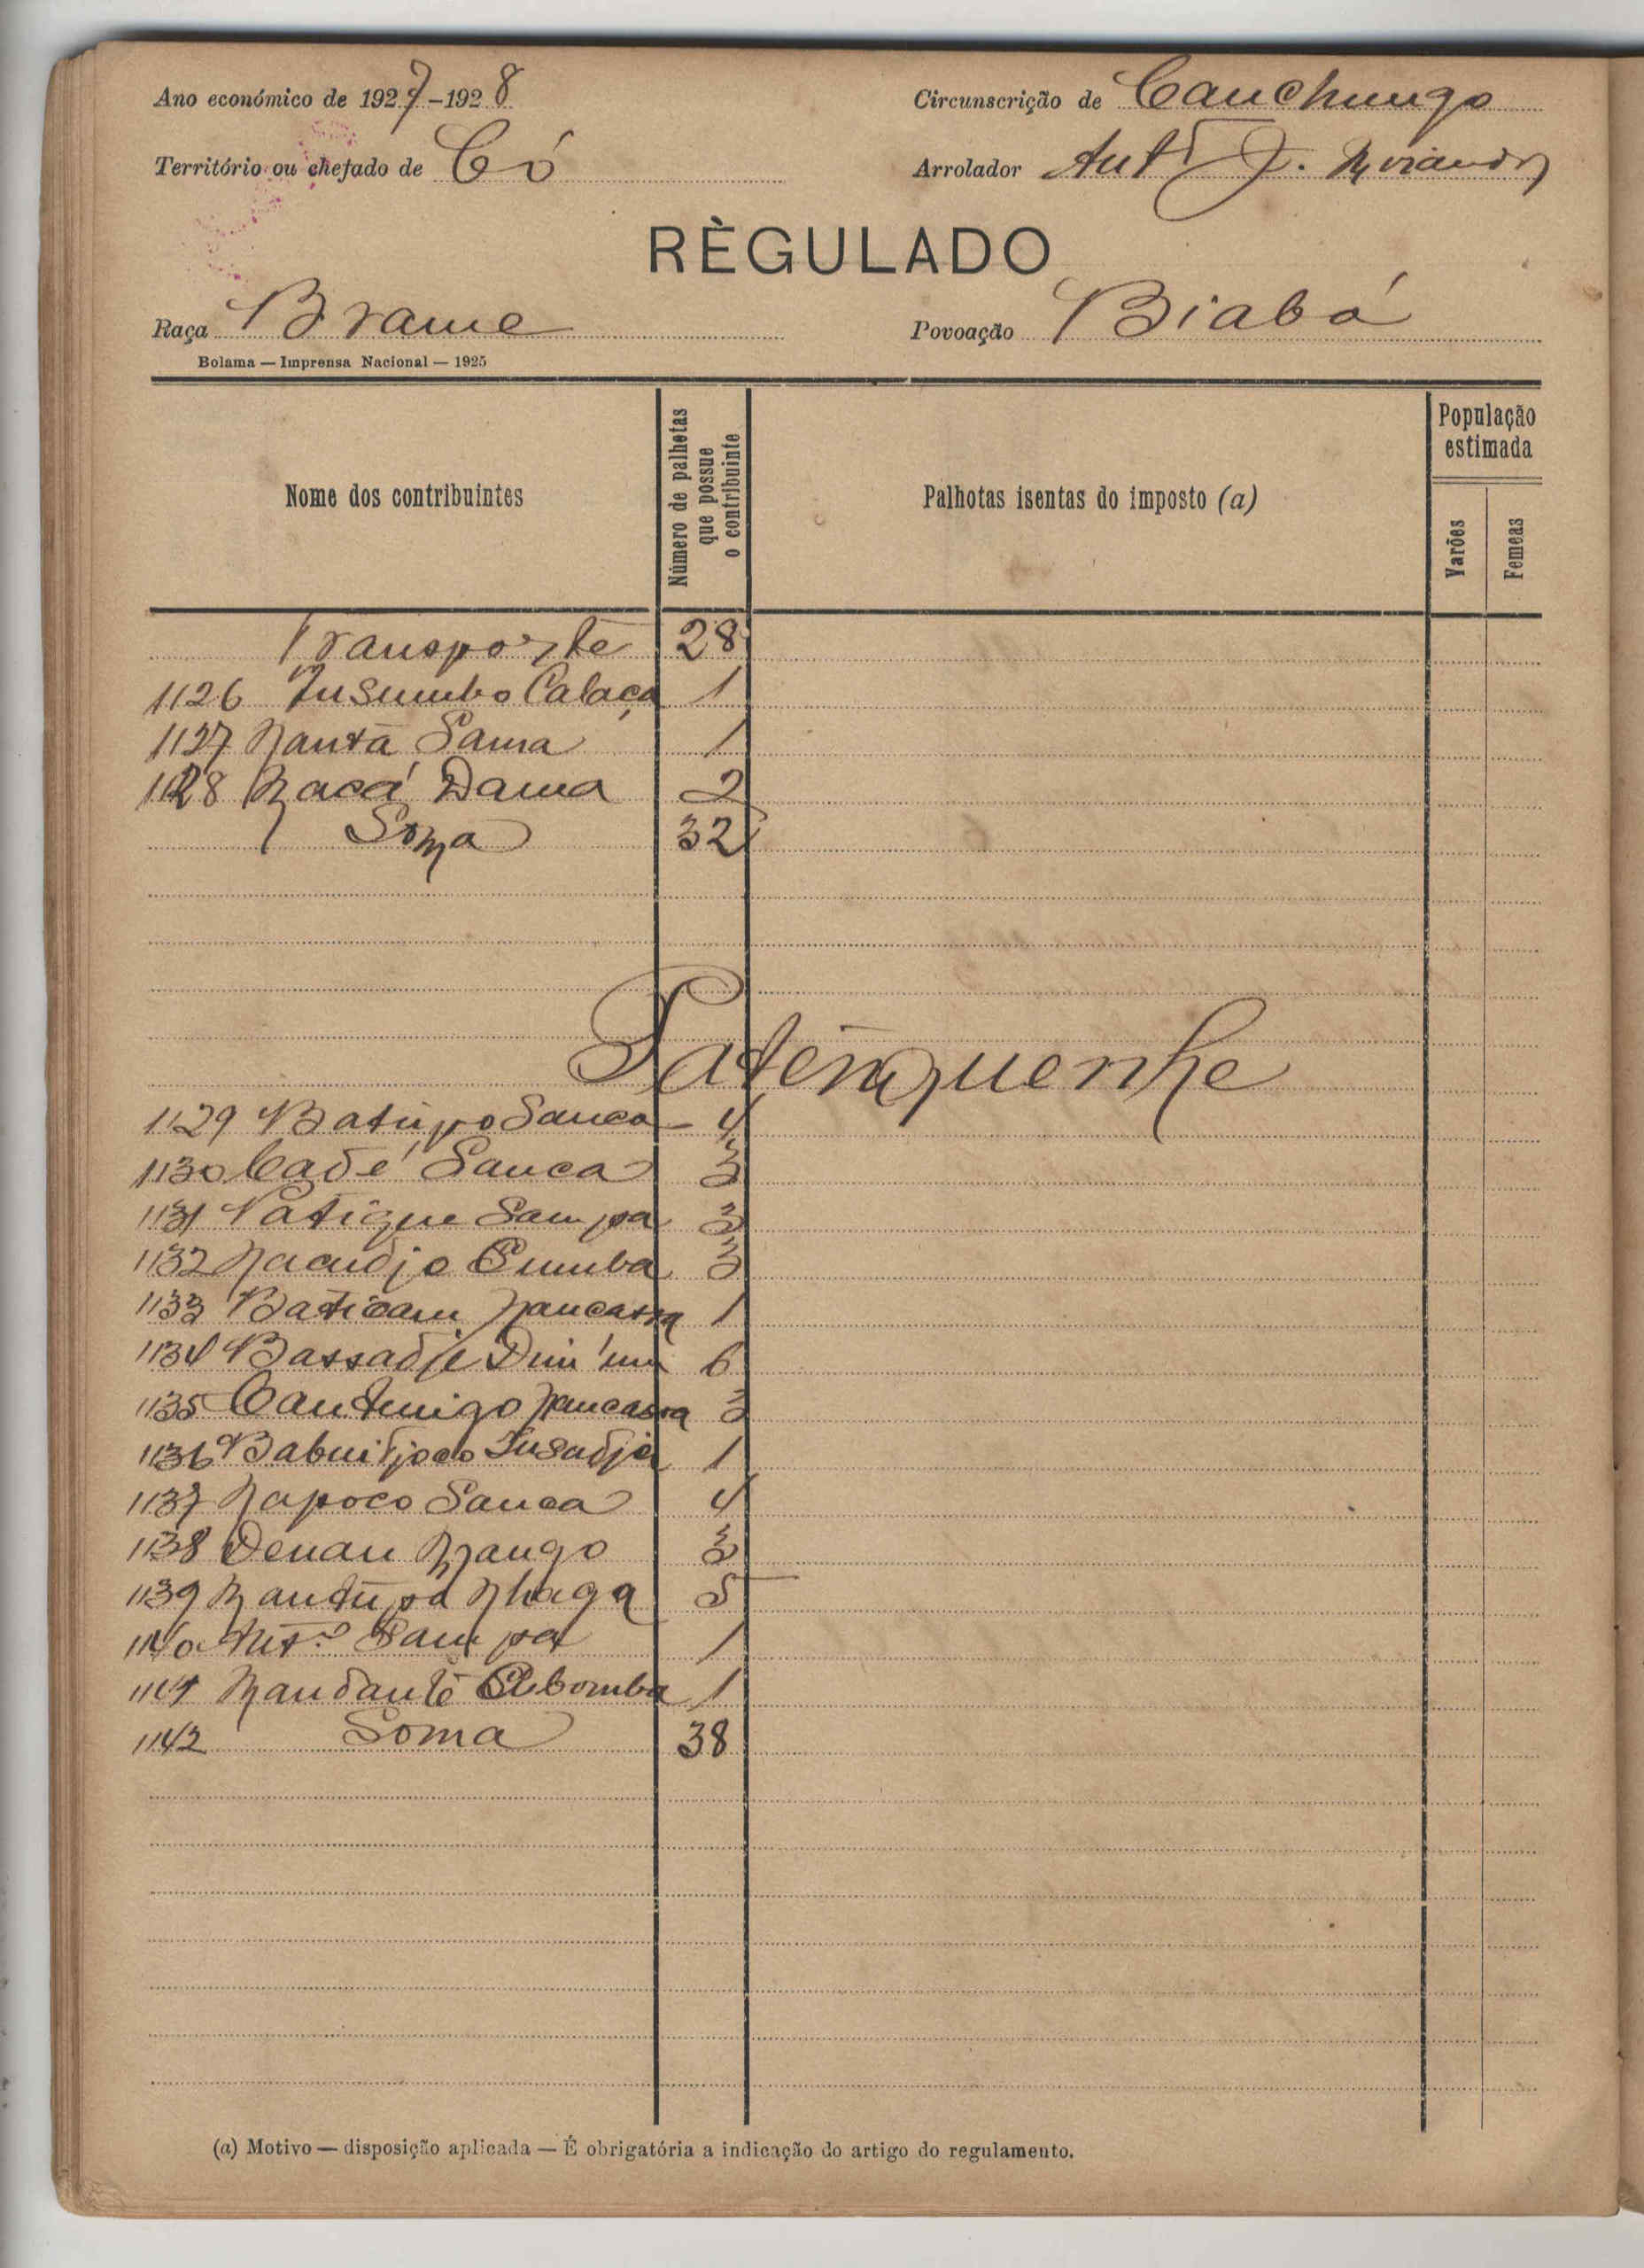 Ano económico de 1927-1928
Circunscrição de Canchungo
Território ou chefado de Có
Arrolador Antº J.
RÈGULADO
Raça Brame
Povoação Biabá
Bolama — Imprensa Nacional — 1925
Nome dos contribuintes
Número de palhotas que possue o contribuinte
Palhotas isentas do imposto (a)
População estimada
Varões
Femeas
Transporte 28
1126 Insumbo Calaça 1
1127 Nantã Sama 1
1128 Nacá Dama 2
Soma 32
Patenquenhe
1129 Batúpo Sanca 4
1130 Cadé Sanca 3
1131 Patique Sampa 3
1132 3
1133 Baticam Nancassa 1
1134 Bassadje 6
1135 Nancassa 3
1136 1
1137 Napoco Sanca 4
1138 Denan Nango 3
1139 Nantúpa Nhaga 5
1140 Antº Sampa 1
1141 1
1142 Soma 38
(a) Motivo — disposição aplicada — É obrigatória a indicação do artigo do regulamento.